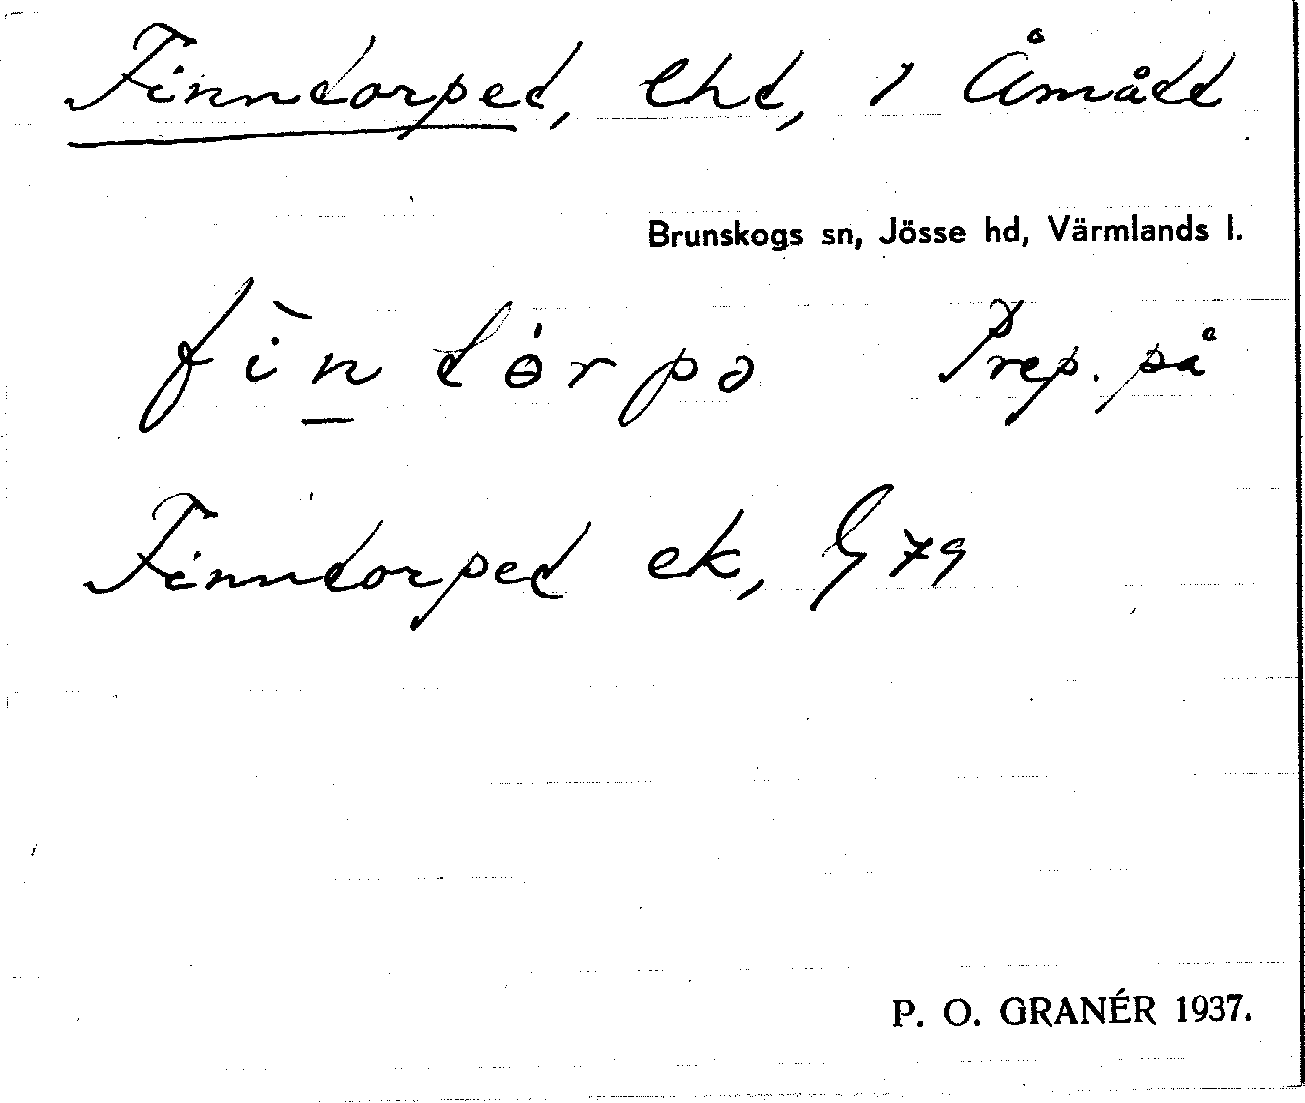 Finntorpet, lht, 1 Åmått
Brunskogs sn, Jösse hd, Värmlands l.
fìn tɵ́rpə Prep. på
Finntorpet ek, G 79
P. O. GRANÉR 1937.